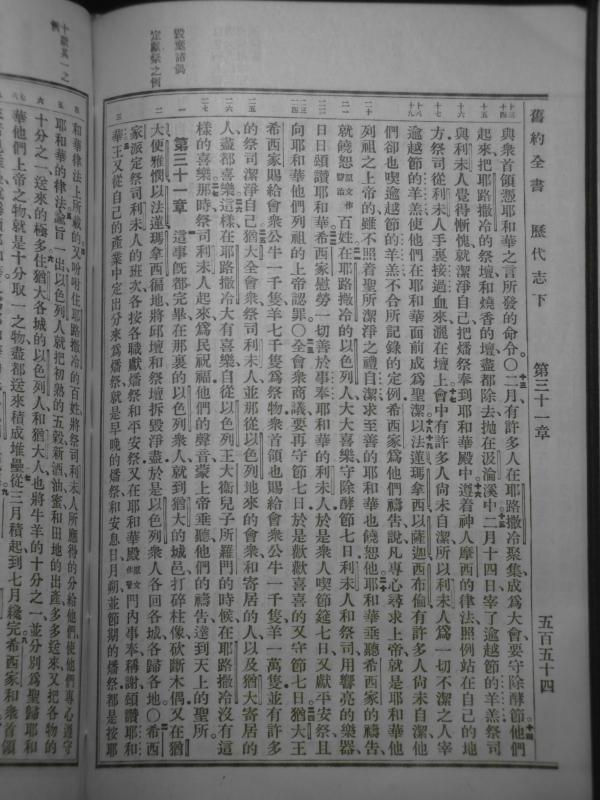 舊約全書 歷代志下 第三十一章 五百五十四
與衆首領憑耶和華之言所發的命令○二月有許多人在耶路撒冷聚集成爲大會要守除酵節他們
起來把耶路撒冷的祭壇和燒香的壇盡都除去拋在汲淪溪中二月十四日宰了逾越節的羊羔祭司
與利未人覺得慚愧就潔淨自己把燔祭奉到耶和華殿中遵着神人摩西的律法照例站在自己的地
方祭司從利未人手裏接過血來灑在壇上會中有許多人尙未自潔所以利未人爲一切不潔之人宰
逾越節的羊羔使他們在耶和華面前成爲聖潔以法蓮瑪拿西以薩迦西布倫有許多人尙未自潔他
們卻也喫逾越節的羊羔不合所記錄的定例希西家爲他們禱告說凡專心尋求上帝就是耶和華他
列祖之上帝的雖不照着聖所潔淨之禮自潔求至善的耶和華也饒恕他耶和華垂聽希西家的禱告
就饒恕原文作醫治百姓在耶路撒冷的以色列人大大喜樂守除酵節七日利未人和祭司用響亮的樂器
日日頌讚耶和華希西家慰勞一切善於事奉耶和華的利未人於是衆人喫節筵七日又獻平安祭且
向耶和華他們列祖的上帝認罪○全會衆商議要再守節七日於是歡歡喜喜的又守節七日猶大王
希西家賜給會衆公牛一千隻羊七千隻爲祭物衆首領也賜給會衆公牛一千隻羊一萬隻並有許多
的祭司潔淨自己猶大全會衆祭司利未人並那從以色列地來的會衆和寄居的人以及猶大寄居的
人盡都喜樂這樣在耶路撒冷大有喜樂自從以色列王大衞兒子所羅門的時候在耶路撒冷沒有這
樣的喜樂那時祭司利未人起來爲民祝福他們的聲音蒙上帝垂聽他們的禱告達到天上的聖所
第三十一章 這事旣都完畢在那裏的以色列衆人就到猶大的城邑打碎柱像砍斷木偶又在猶
大便雅憫以法蓮瑪拿西徧地將邱壇和祭壇拆毀淨盡於是以色列衆人各回各城各歸各地○希西
家派定祭司利未人的班次各按各職獻燔祭和平安祭又在耶和華殿原文作營門內事奉稱謝頌讚耶和
華王又從自己的產業中定出分來爲燔祭就是早晚的燔祭和安息日月朔並節期的燔祭都是按耶
毀棄諸偶
定獻祭之例
和華律法上所載的又吩咐住耶路撒冷的百姓將祭司利未人所應得的分給他們使他們專心遵守
耶和華的律法諭旨一出以色列人就把初熟的五穀新酒油蜜和田地的出產多多送來又把各物的
十分之一送來的極多住猶大各城的以色列人和猶大人也將牛羊的十分之一並分別爲聖歸耶和
華他們上帝之物就是十分取一之物盡都送來積成堆壘從三月積起到七月纔完希西家和衆首領
十獻其一之例